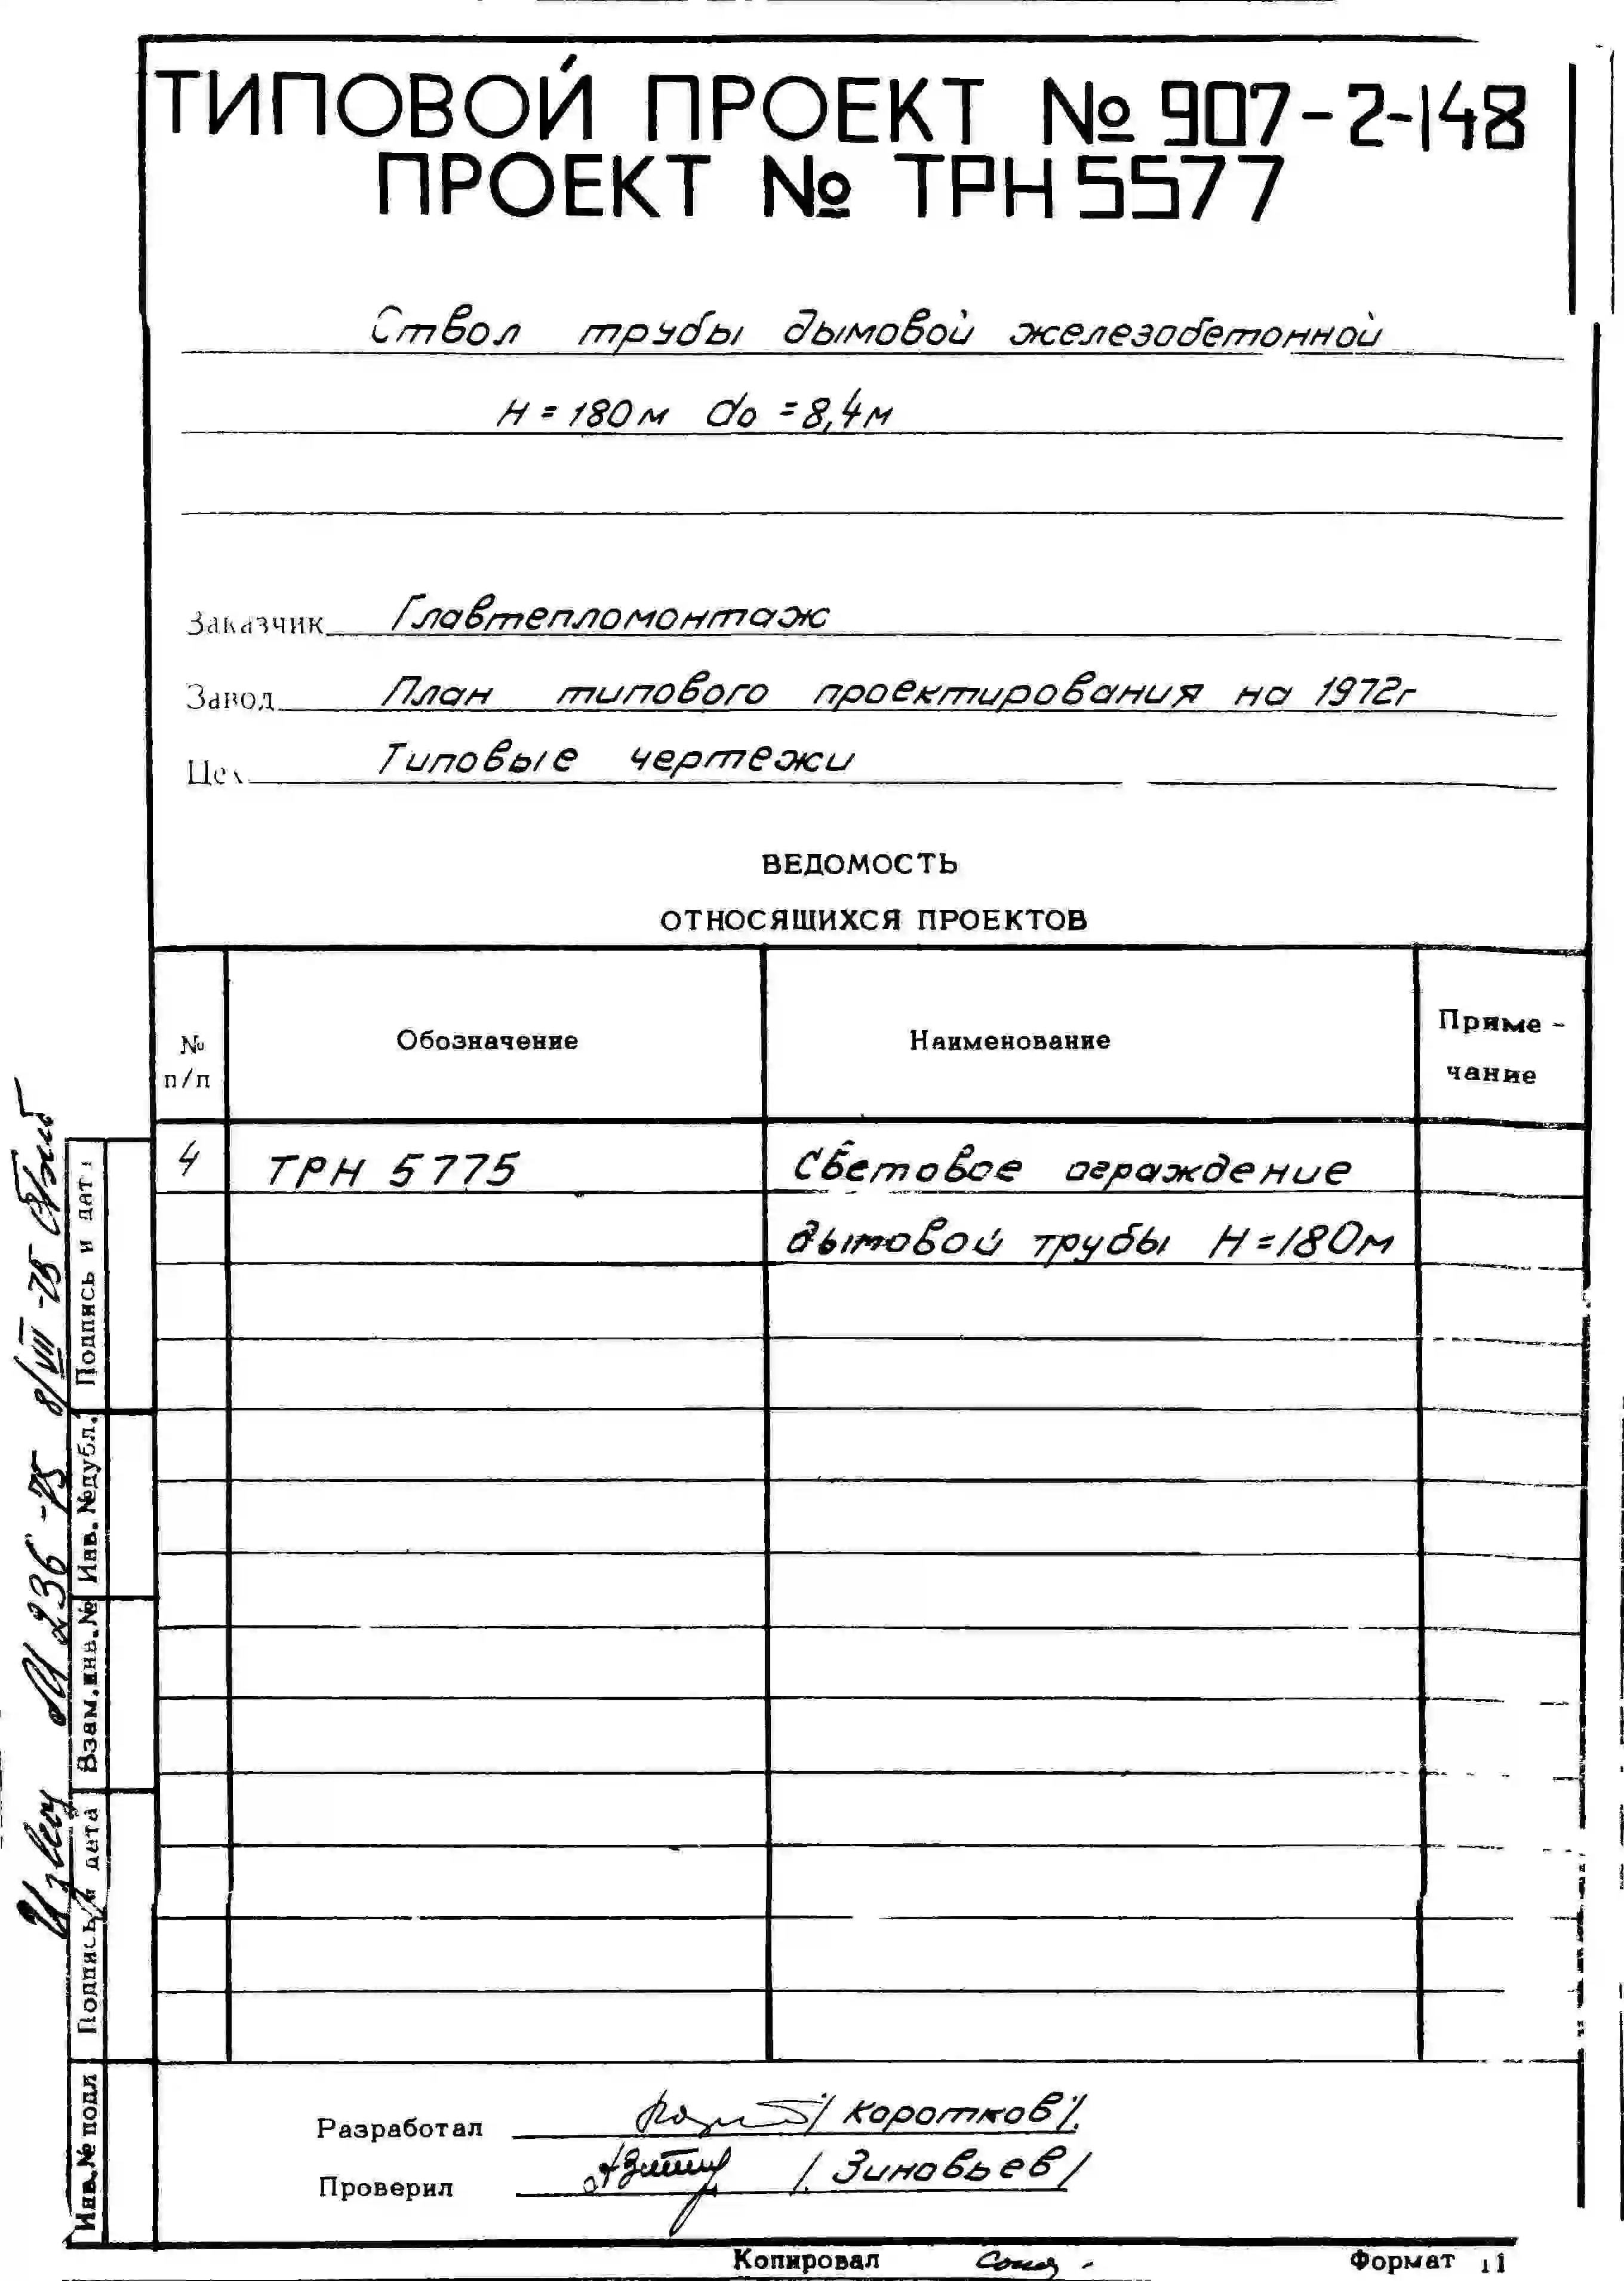 ТИПОВОЙ ПРОЕКТ № 907-2-148
ПРОЕКТ № ТРН 5577
Ствол трубы дымовой железобетонной
Н = 180 м do = 8,4 м
Заказчик Главтепломонтаж
Завод План типового проектирования на 1972г
Цех Типовые чертежи
ВЕДОМОСТЬ
ОТНОСЯЩИХСЯ ПРОЕКТОВ
№ п/п Обозначение Наименование Приме-чание
4 ТРН 5775 Световое ограждение
дымовой трубы Н=180м
Разработал / Коротков /.
Проверил /. Зиновьев /
Копировал Формат 11
Инв.№ подл Подпись и дата Взам.инв.№ Инв.№дубл. Подпись и дата
Извещ М 236-75 8/VII-75